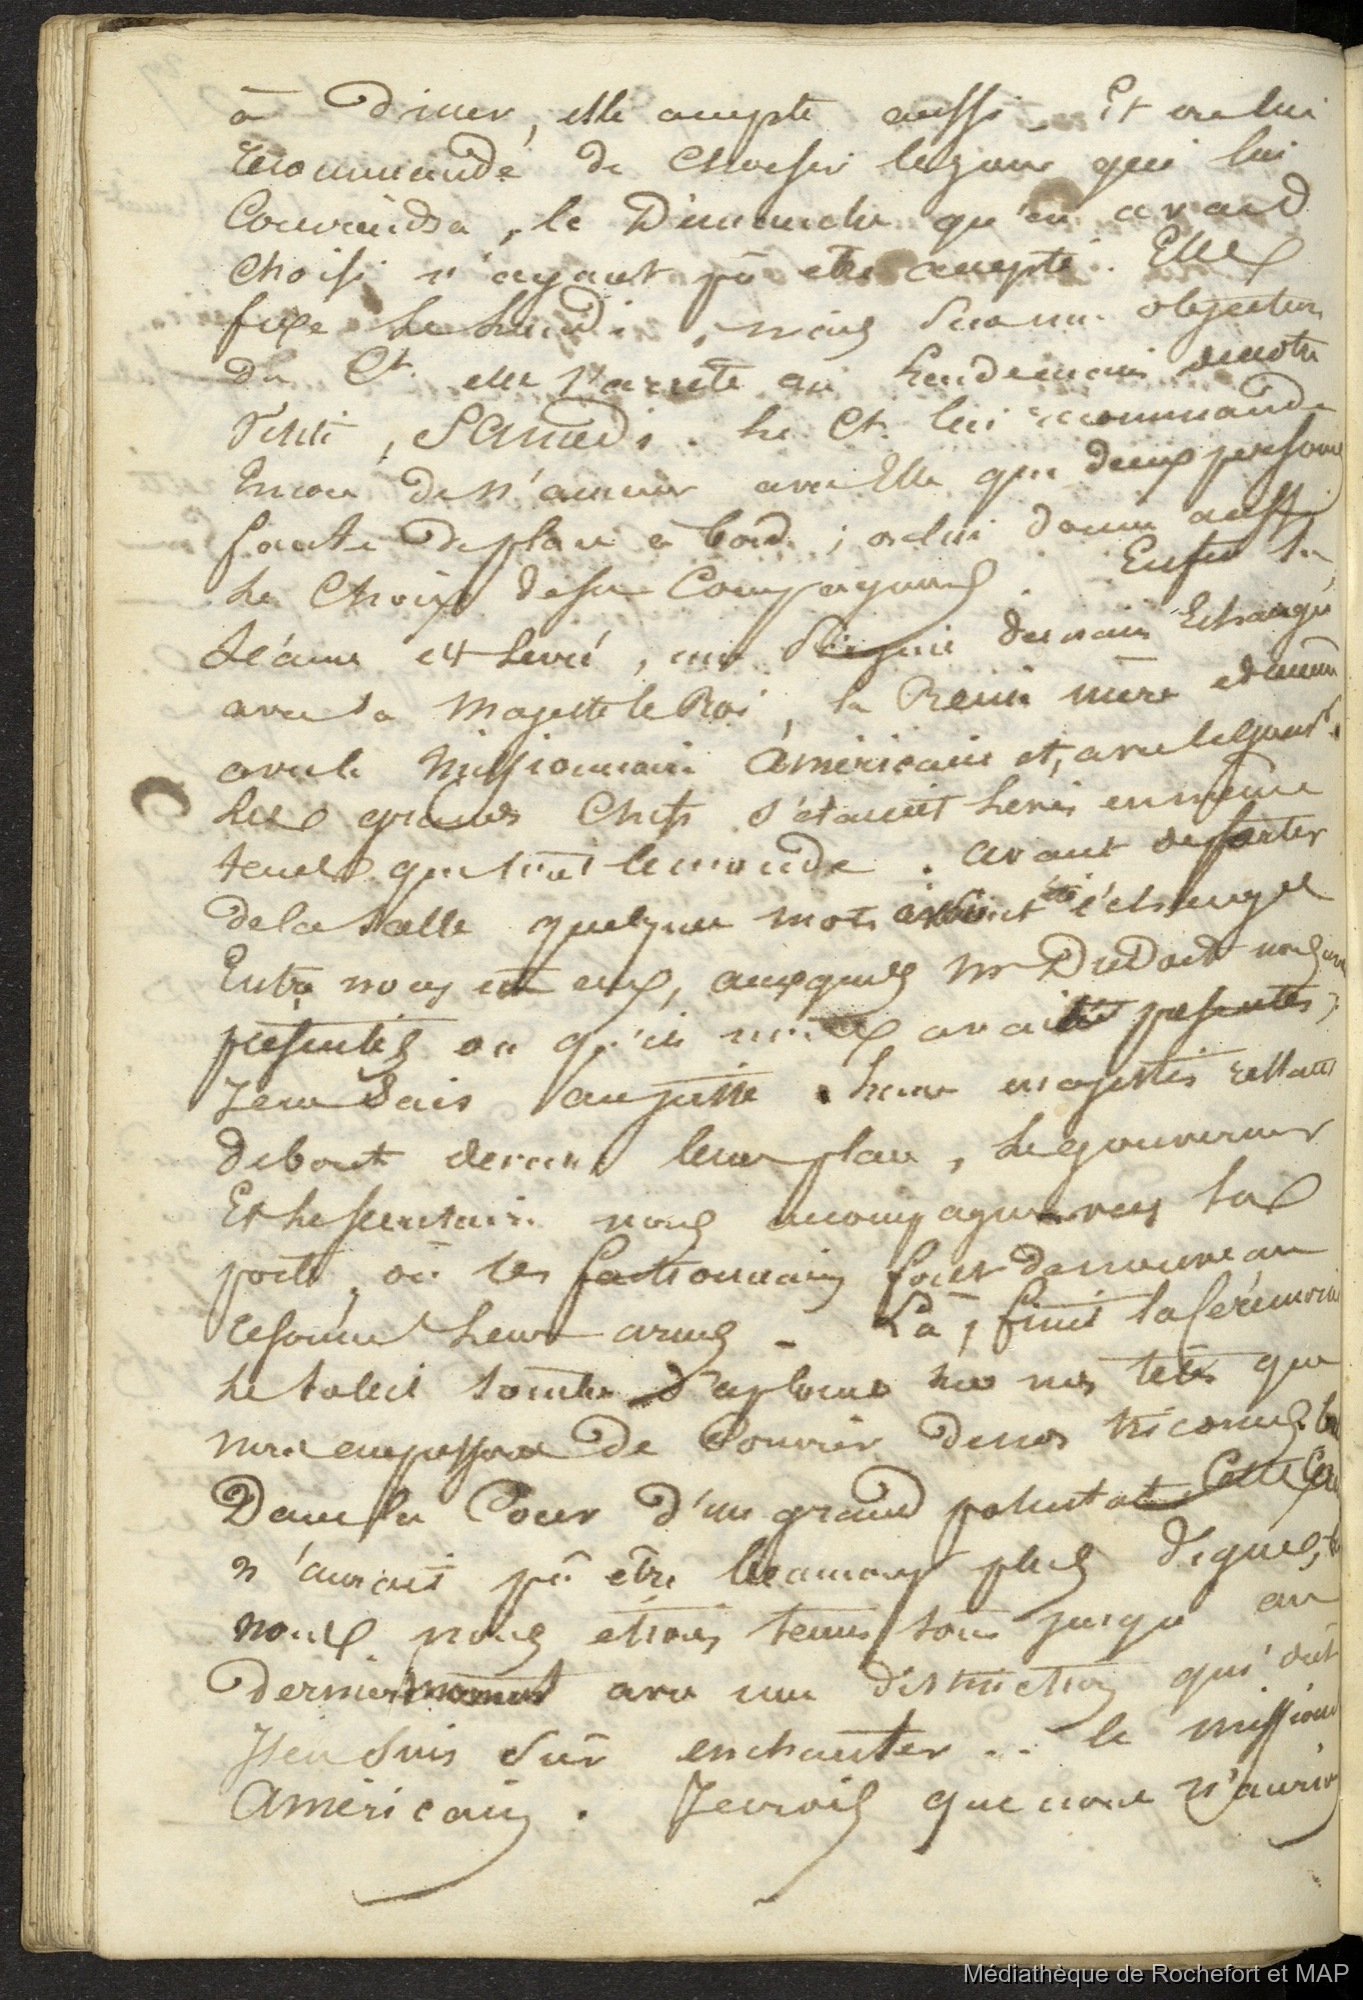 à Diner, elle accepte aussi. Et on lui
recommande de choisir le jour qui lui
conviendra, le Dimanche qu'on avaid
choisi n'ayant pû etre accepté. Elle
fixe le lundi, mais sur une objection
du Ct. elle s'arrete au lendemain de notre
visite, Samedi. Le Ct. lui recommande
Encore de n'amener avec Elle que deux personnes
faute de place à bord; on lui donne aussi
le choix de sa Compagnie. Enfin la
séance est levée, une poignée de main Echangée
avec sa Majesté le Roi, la Reine mère et même
avec le Missionnaire Américain et, avec le gouvr.
Les grands Chefs s'étaient levés en même
tems que tout le monde. avant de sortir
de la salle quelques mots avaient été échangés
Entre nous et eux, auxquels Mr Dudoit nous avait
présentés ou qu'il nous avait présentés,
Je ne sais au juste. Leurs majestés restant
debout devant leur place, le gouverneur
Et le secretaire nous accompagnent vers la
porte, où les factionnaires font de nouveau
résonner leurs armes. Là, finit la Cérémonie
le soleil tombe d'aplomb sur nos têtes que
nous empressons de couvrir de nos tricornes.
Dans la Cour d'un grand potentat Cette
n'aurait pû être beaucoup plus digne,
nous nous étions tenus tous jusqu'au
dernier moment avec une distinction qui doit
J'en suis sûr enchanter .. le missionn
Américain. Je crois que nous n'aurion
Médiathèque de Rochefort et MAP